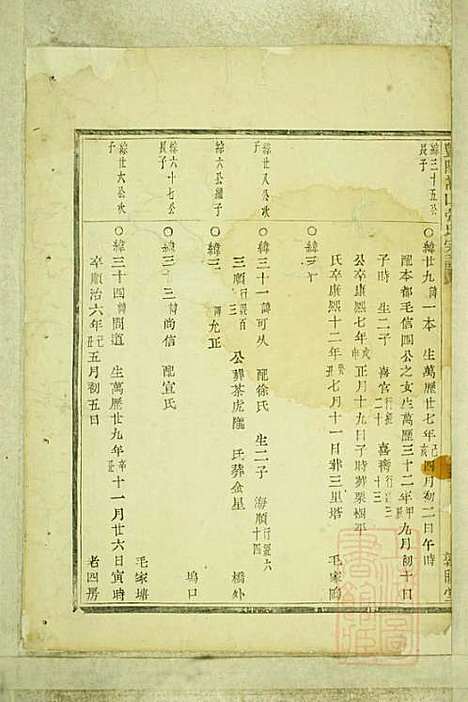 綜三十五公
長子
○緯廿九諱一本 生萬歷廿七年己亥四月初二日午時
配本都毛信閏公之女生萬歷三十二年甲九月初十日
子時 生二子 喜官行經二十 喜 行經三十
公卒康熙七年戊申正月十九日子時葬栗樹平
氏卒康熙十二年癸丑七月十一日葬三里塔 毛家塢
○緯三十
綜廿八公次
子
○緯三十一諱可从 配徐氏 生二子 海順行經六十四
三順行經百 公葬茶虎隴 氏葬金星 橋外
綜六公繼子
○緯三 諱允正
綜六十七公
長子
○緯三十三諱尚信 配宣氏 塢口
綜廿六公次
子
○緯三十四諱問道 生萬歷廿九年辛丑十一月廿六日寅時 毛家塘
卒順治六年己丑五月初五日 老四房